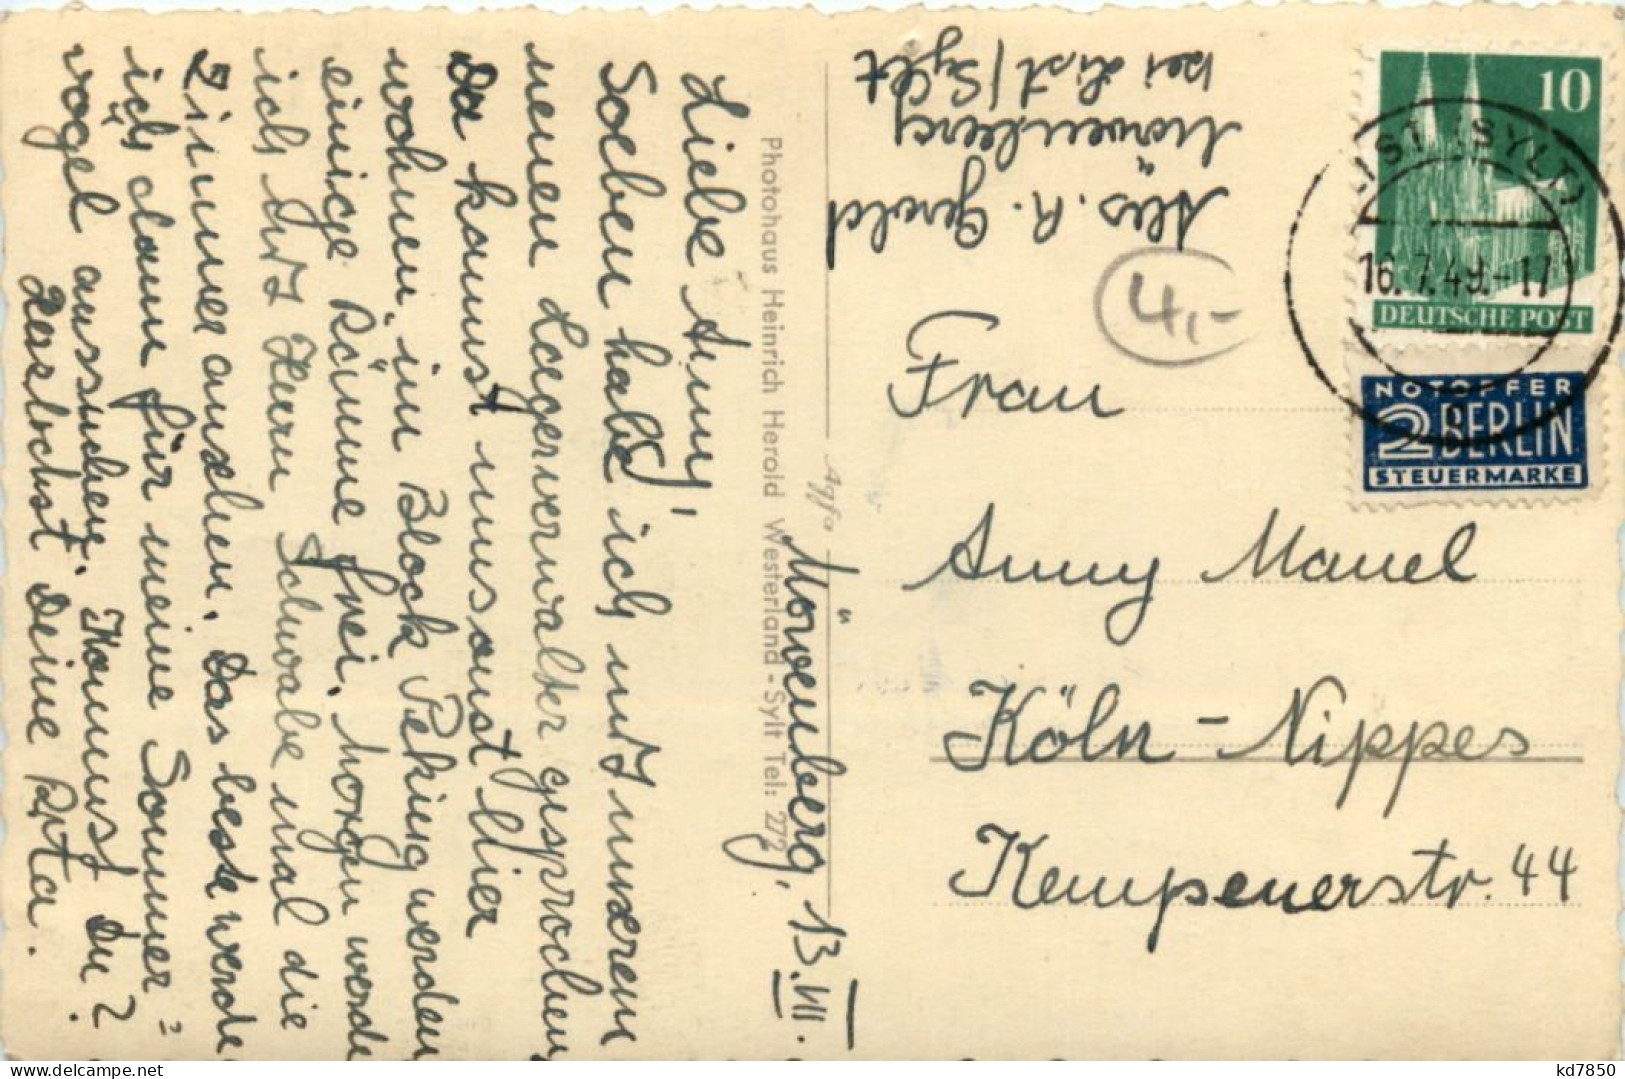 Möwenberg, 13. VII.
Liebe Anny!
Soeben habe ich mit unserem
neuen Lagerverwalter gesprochen,
Du kannst umsonst hier
wohnen, im Block Peking werden
einige Räume frei. Morgen werde
ich mit Herrn Schwabe mal die
Zimmer ansehen. Das beste werde
ich dann für meine Sommer=
vögel aussuchen. Kommst Du?
Herzlichst Deine Rita.
Photohaus Heinrich Herold Westerland - Sylt Tel: 272
Agfa
Abs. R. Gerold
Möwenberg
bei List / Sylt
4,-
10
DEUTSCHE POST
NOTOPFER
2 BERLIN
STEUERMARKE
LIST (SYLT)
16.7.49.-17
Frau
Anny Manel
Köln-Nippes
Kempenerstr. 44
kd7850